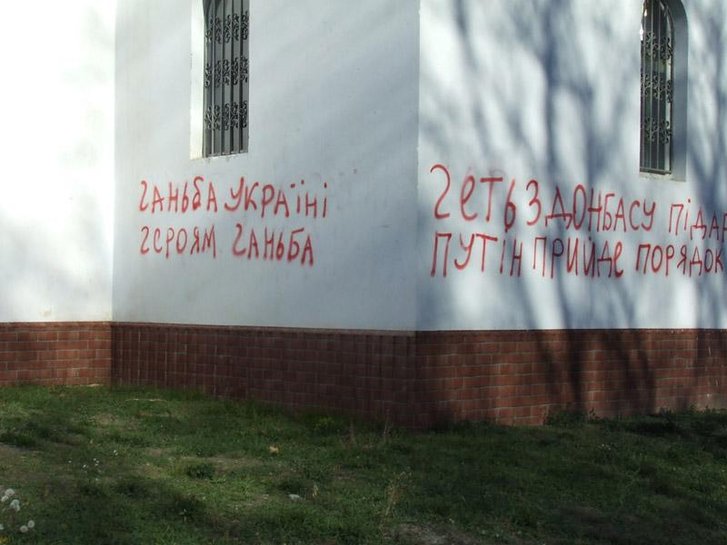 ганьба Україні
героям ганьба
геть з Донбасу підар
Путін прийде порядок